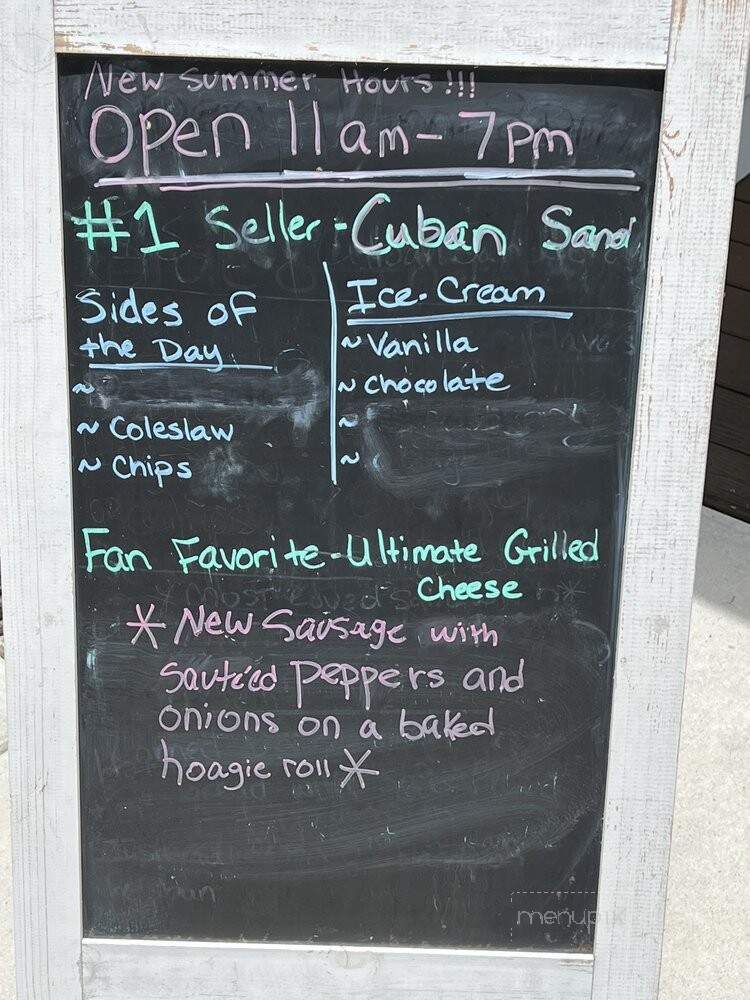 New Summer Hours!!!
Open 11am - 7pm
#1 Seller - Cuban Sand
Sides of
the Day
~
~ Coleslaw
~ Chips
Ice-Cream
~ Vanilla
~ Chocolate
~
~
Fan Favorite - Ultimate Grilled
Cheese
* New Sausage with
sautéed peppers and
onions on a baked
hoagie roll *
menupix